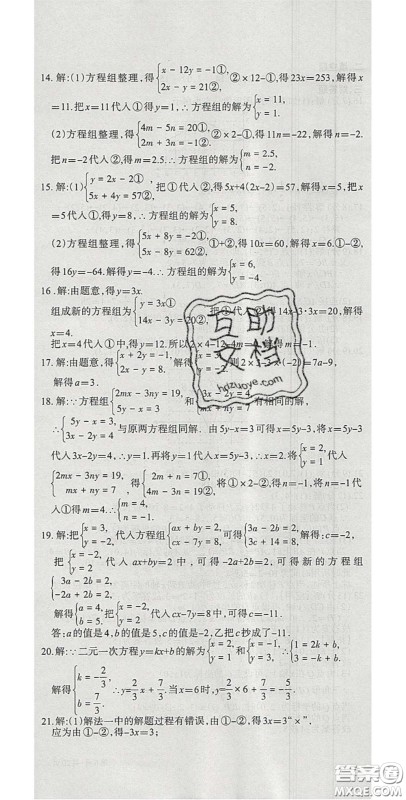 14. 解:(1)方程组整理,得{x-12y=-1①, 2x-y=21②, ②×12-①,得23x=253,解得x
=11.把x=11代人①得y=1,∴方程组的解为{x=11, y=1.
(2)方程组整理,得{4m-5n=20①, 2m+3n=-1②, ②×2-①,得11n=-22,解得n=-2.
把n=-2代入②,得m=2.5.∴方程组的解为{m=2.5, n=-2.
15. 解:(1){y=2x-2①, 5x+4y=57②, 把①代入②,得5x+4(2x-2)=57,解得x=5,把x
=5代人①,得y=8,∴方程组的解为{x=5, y=8.
(2)方程组整理,得{5x+8y=-2①, 5x-8y=62②, ①+②,得10x=60,解得x=6.①-②,
得16y=-64.解得y=-4.∴方程组的解为{x=6, y=-4.
16. 解:由题意,得y=3x.
组成新的方程组为{y=3x①, 14x-3y=20②, 把①代入②得14x-3·3x=20,解得
x=4.
把x=4代人①中,得y=12.所以2×4-12
17. 解:由题意,得 解得 2×1-3×(-2)=7a-9,
解得a=3.
18. 解:∵方程组{2mx-3ny=19, 5y-x=3 和{3x-2y=4, 有相同的解.
∴{5y-x=3, 3x-2y=4 与原两方程组同解.由5y-x=3可得x=5y-3,将x=5y-3
代人3x-2y=4,∴y=1.再将y=1代入x=5y-3,∴x=2.将{x=2, y=1代入
{2mx-3ny=19, mx+ny=7, 得{4m-3n=19①, 2m+n=7②, 将①-②×2,得n=-1,将n=-1代
人②,得m=4.∴{m=4, n=-1.
19. 解:把{x=3, y=-2代人方程组{ax+by=2, cx-7y=8, 可得{3a-2b=2, 3c+14=8, 解得:c=-2,
把{x=-2, y=2 代人ax+by=2中,可得-2a+2b=2,可得新的方程组
{3a-2b=2, -2a+2b=2,
解得{a=4, b=5. 把{x=-2, y=2代人cx-7y=8中,可得c=-11.
答:a的值是4,b的值是5,c的值是-2,乙把c抄成了-11.
20. 解:∵二元一次方程y=kx+b的解为{x=2, y=1 和{x=-1, y=3, ∴{1=2k+b, 3=-k+b,
解得{k=-2/3, b=7/3. ∴y=-2/3x+7/3.当x=6时,y=-2/3×6+7/3=-5/3.
21. 解:(1)解法一中的解题过程有错误,由①-②,得3x=3“×”,
应为由①-②,得-3x=3;
互助
文档
hdzuoye.com
答案圈
MXQE.COM